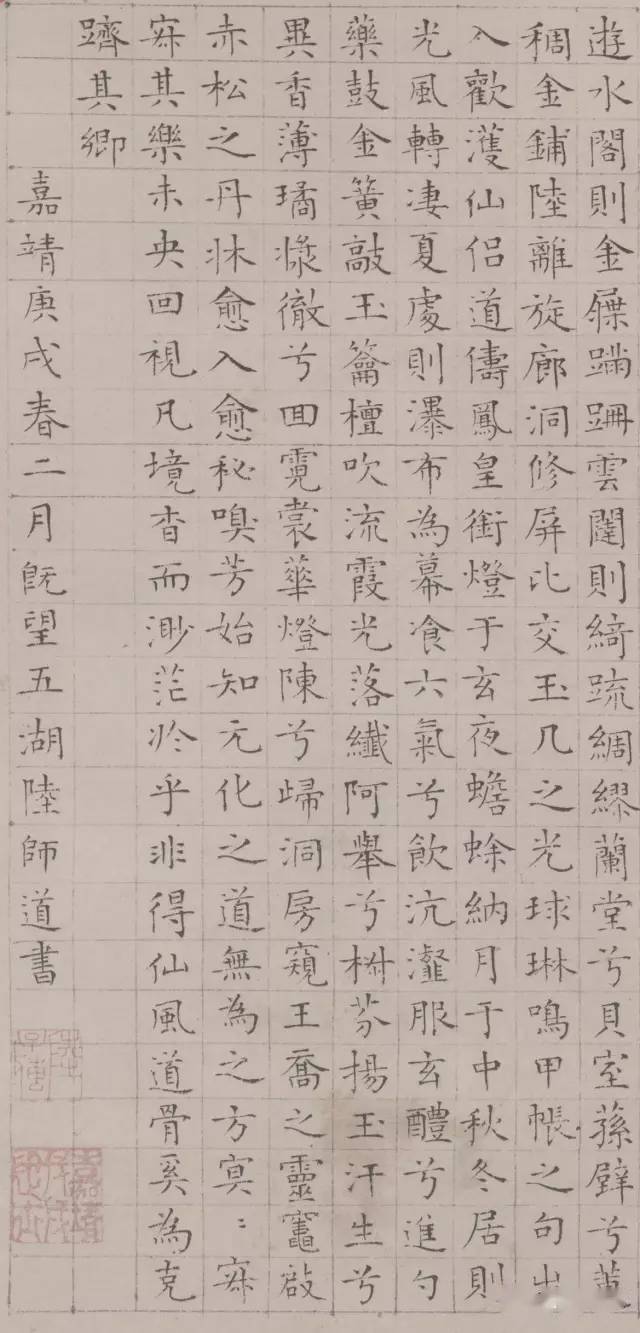 遊水閣則金屧蹣跚雲闥則綺疏綢繆蘭堂兮貝室蓀壁兮
稠金鋪陸離旋廊洞修屏比交玉几之光球琳鳴甲帳之句出
入歡濩仙侣道儔鳳皇銜燈于玄夜蟾蜍納月于中秋冬居則
光風轉凄夏處則瀑布為幕飡六氣兮飲沆瀣服玄醴兮進勺
藥鼓金簧敲玉籥檀吹流霞光落纖阿舉兮椒芬揚玉汗生兮
異香薄璚漿徹兮回霓裳華燈陳兮歸洞房窺王喬之靈竈啟
赤松之丹牀愈入愈秘嗅芳始知元化之道無為之方冥〻寂
寂其樂未央回視凡境杳而渺茫於乎非得仙風道骨奚為克
躋其鄉
嘉靖庚戌春二月既望五湖陸師道書